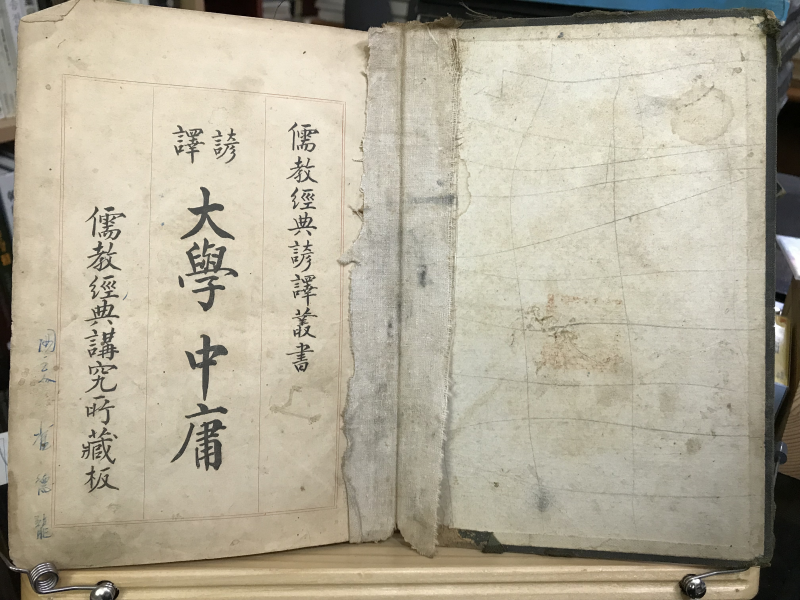 儒教經典諺譯叢書
諺譯
大學 中庸
儒教經典講究所藏板